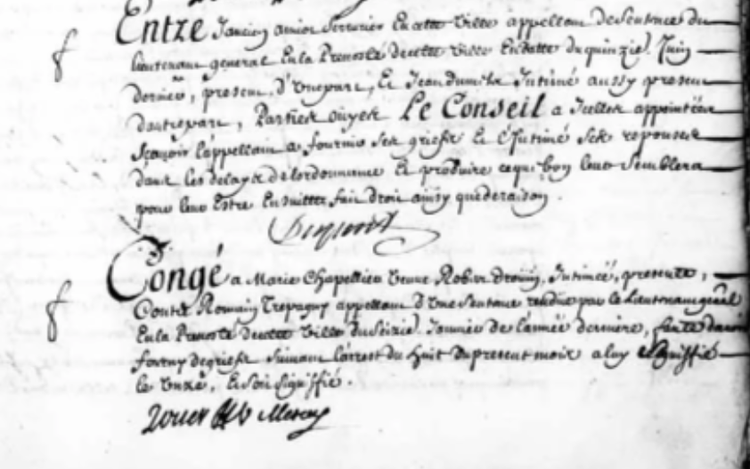 Entre Jancien amiot serrurier En cette Ville appellant de Sentence du
Lieutenant general En la Prevosté de cette Ville En datte du quinzie. Juin
dernier, present, D'Une part, Et Jean Intimé aussy present
d'autre part, Parties ouyes Le Conseil a Icelles appointées
sçavoir l'appellant a fournir ses griefs Et l'Intimé ses reponses
dans les delays de lordonnance Et produire ce que bon leur Semblera
pour leur Estre En suitte fait droit ainsy que de raison.
Dupont
Congé a Marie Chapellier Veuve Robert Drouin, Intimée, presente,
Contre Romain Trepagny appellant D'Une Sentence rendue par le Lieutenant general
En la Prevosté de cette Ville du Seizie. Janvier de l'année derniere, faute davoir
fourny de griefs Suivant l'arrest du huit du present mois a luy Signiffié
le Unze, Et Soit Signiffié.